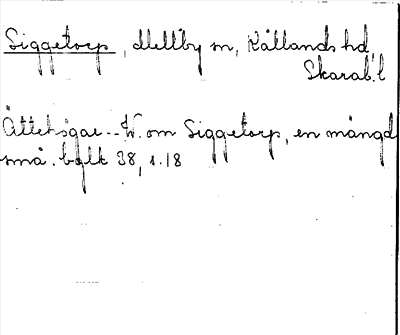 Siggetorp, Mellby sn, Kållands hd
Skarab.l
Ättehögar -- W. om Siggetorp, en mängd
små. balk 38, s. 18